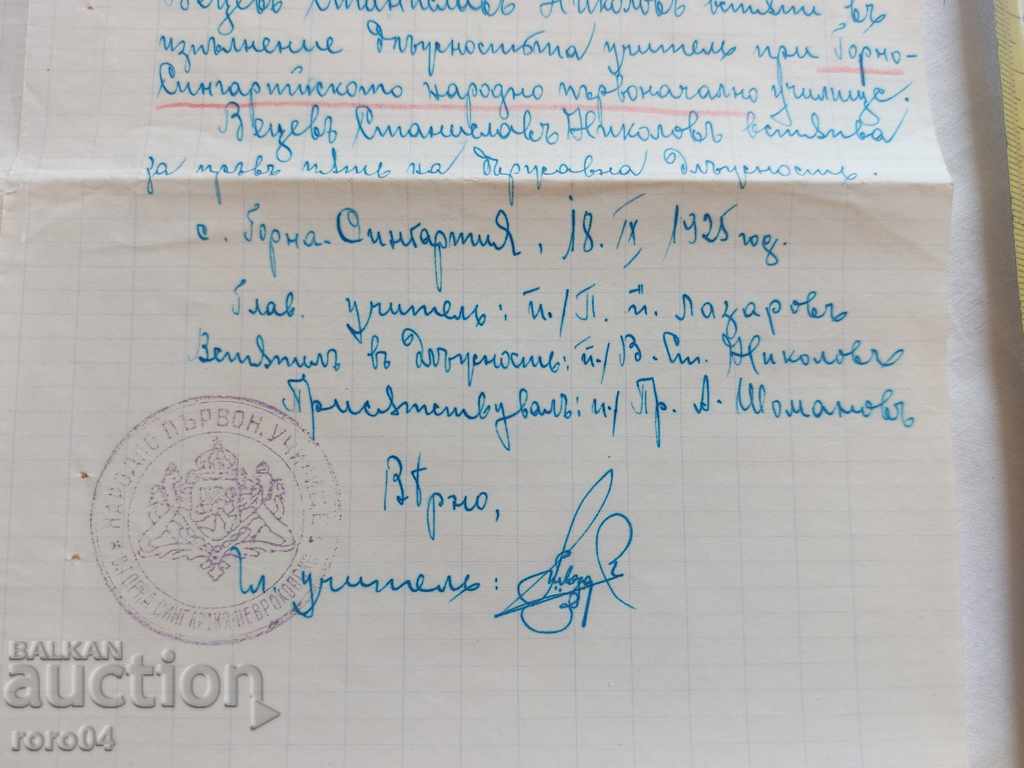 Вецевъ Станиславъ Николовъ встѫпи въ
изпълнение длъжностьта учитель при Горно-
Сингартийското народно първоначално училище.
Вецевъ Станиславъ Николовъ встѫпва
за първъ пѫть на държавна длъжность.
с. Горна-Сингартия, 18. IX 1925 год.
Глав. учитель: п./П. п. Лазаровъ
Встѫпилъ въ длъжность: п./В. Ст. Николовъ
Присѫтствувалъ: п/ Пр. А. Шомановъ
Вѣрно,
Гл. учитель:
НАРОДНО ПЪРВОН. УЧИЛИЩЕ
BALKAN
auction
roro04